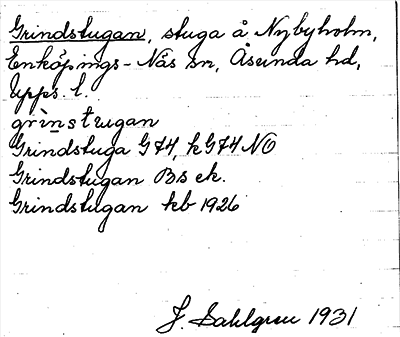 Grindstugan, stuga å Nybyholm,
Enköpings-Näs sn, Åsunda hd,
Upps. l.
grìnstugan
Grindstuga G74, kG74 NO
Grindstugan Bs ek.
Grindstugan kb 1926
J. Sahlgren 1931